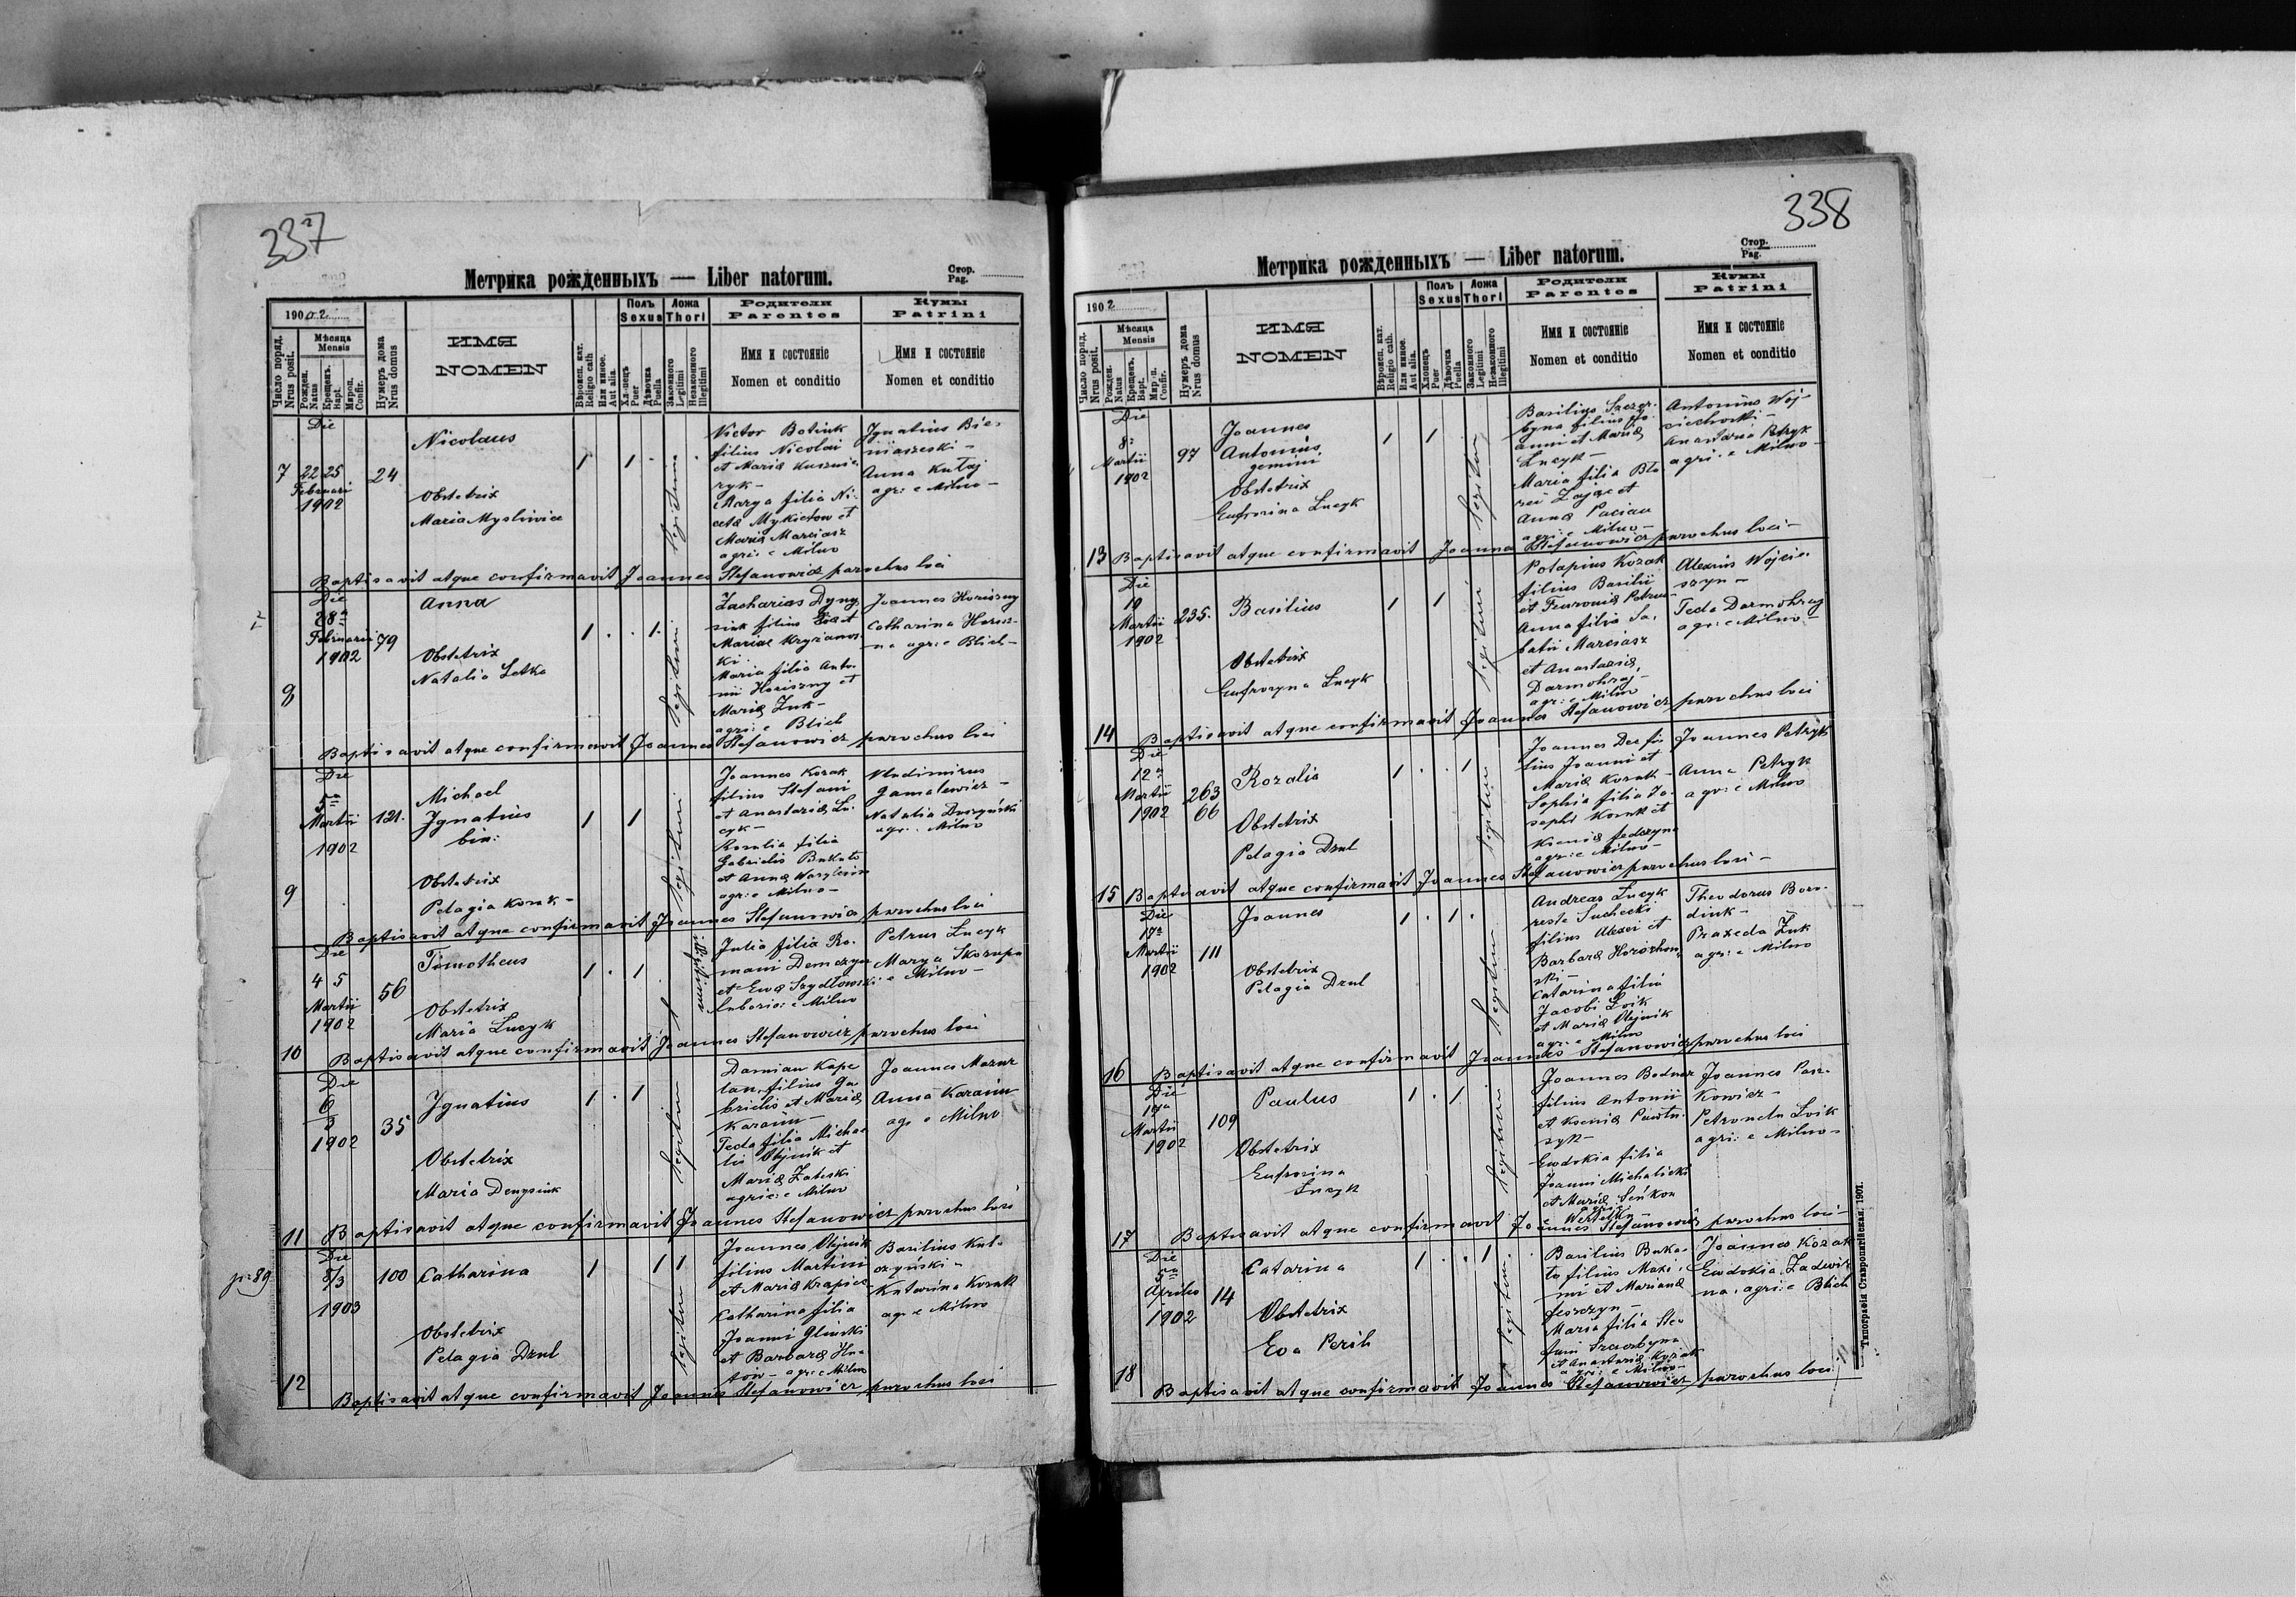 337
Метрика рожденныхъ — Liber natorum.
Стор.
Pag.
1902
Число поряд.
Nrus posit.
Мѣсяца
Mensis
Рожден.
Natus
Крещенъ.
Bapt.
Мѵроп.
Confir.
Нумеръ дома
Nrus domus
ИМЯ
NOMEN
Вѣроисп. кат.
Religio cath
Или иное.
Aut alia.
Полъ
Sexus
Хлопецъ
Puer
Дѣвочка
Puella
Ложа
Thori
Законного
Legitimi
Незаконного
Illegitimi
Родители
Parentes
Имя и состояніе
Nomen et conditio
Кумы
Patrini
Имя и состояніе
Nomen et conditio
7
Die
22 25
Februari
1902
24
Nicolaus
Obstetrix
Maria Mysliwiec
1
1
legitimi
Victor Botiuk
filius Nicolai
et Mariæ
Marya filia Ni-
cetæ Mykietow et
Mariæ Marciasz
agri: e Milno
Ignatius
Anna Kutaj
agr: e Milno —
Baptisavit atque confirmavit Joannes Stefanowicz parochus loci
8
Die
28a
Februarii
1902
79
Anna
Obstetrix
Natalia Letka
1
1
legitimi
Zacharias
filius et
Mariae Kryzanow-
ki
Maria filia Anto-
nii Horiszny et
Mariæ Zuk —
agri: e Blich
Joannes Horiszny
Catharina Horisz-
na agri: e Blich —
Baptisavit atque confirmavit Joannes Stefanowicz parochus loci
9
Die
5a
Martii
1902
121.
Michael
Ignatius
bin:
Obstetrix
Pelagia Kozak —
1
1
legitimi
Joannes Kozak
filius Stefani
et Anastasiæ Lu-
cyk —
Rosalia filia
Gabrielis Bukato
et Annæ
agri: e Milno —
Vladimirus
Gamalewicz —
Natalia
agr: Milno
Baptisavit atque confirmavit Joannes Stefanowicz parochus loci
10
Die
4 5
Martii
1902
56
Timotheus
Obstetrix
Maria Lucyk
1
1
1
illegitimi
Julia filia Ro-
mani Demczyna
et Ewæ Szydlowski
laborio: e Milno
Petrus Lucyk
Marya Skorupa
e Milno —
Baptisavit atque confirmavit Joannes Stefanowicz parochus loci
11
Die
6
3
1902
35
Ignatius
Obstetrix
Maria Denysiuk
1
1
legitimi
Damian Kape
lan, filius Ga
brielis et Mariæ
Karaim —
Tecla filia Michae
lis Olejnik et
Mariæ Zaleski
agric: e Milno
Joannes Mazur
Anna Karaim
agr e Milno
Baptisavit atque confirmavit Joannes Stefanowicz parochus loci
12
p. 89
Die
8/3
1903
100
Catharina
Obstetrix
Pelagia Dzul
1
1 1
legitimi
Joannes Olejnik
filius Martini
et Mariæ Krapiec
Catharina filia
Joanni Glinski
et Barbaræ Hna-
tow — agr: e Milno
Basilius Kul-
czyński —
Katarina Kozak
agr: e Milno
Baptisavit atque confirmavit Joannes Stefanowicz parochus loci
338
Метрика рожденныхъ — Liber natorum.
Стор.
Pag.
1902
Число поряд.
Nrus posit.
Мѣсяца
Mensis
Рожден.
Natus
Крещенъ.
Bapt.
Confir.
Нумеръ дома
Nrus domus
ИМЯ
NOMEN
Вѣроисп. кат.
Religio cath.
Или иное.
Aut alia.
Полъ
Sexus
Хлопецъ
Puer
Дѣвочка
Puella
Ложа
Thori
Законного
Legitimi
Незаконного
Illegitimi
Родители
Parentes
Имя и состояніе
Nomen et conditio
Кумы
Patrini
Имя и состояніе
Nomen et conditio
13
Die
8a
Martii
1902
97
Joannes
Antonius
gemini
Obstetrix
Eufrosina Lucyk
1
1
legitimi
Basilius Szczer-
byna filius Jo-
anni et Mariæ
Lucyk —
Maria filia Bła
zei Zając et
Annæ Paciau
agri: e Milno —
Antonius Woj-
ciechoski —
Anastasia Petryk
agri: e Milno —
Baptisavit atque confirmavit Joannes Stefanowicz parochus loci —
14
Die
10
Martii
1902
235.
Basilius
Obstetrix
Eufrozyna Lucyk
1
1
legitimi
Potapius Kozak
filius Basilii
et
Anna filia Sa-
batii Marciasz
et Anastasiæ
Darmohraj —
agri: e Milno
Alexius Wojcie-
szyn —
Tecla Darmohraj
agr: e Milno —
Baptisavit atque confirmavit Joannes Stefanowicz parochus loci
15
Die
12a
Martii
1902
263
66
Rozalia
Obstetrix
Pelagia Dzul
1
1
legitimi
Joannes Dec fi-
lius Joanni et
Mariæ Kozak —
Sophia filia Jo-
sephi Kozak et
Kseniæ Fedczyna
agri: e Milno —
Joannes Petryk
Anna Petryk
agr: e Milno
Baptisavit atque confirmavit Joannes Stefanowicz parochus loci —
16
Die
17a
Martii
1902
111
Joannes
Obstetrix
Pelagia Dzul
1
1
legitimi
Andreas Lucyk
reste Suchecki
filius Alexei et
Barbaræ Horozhow-
ski —
Catarina filia
Jacobi Loik
et Mariæ Olejnik
agr: e Milno
Theodorus Boro-
diuk —
Praxeda Zuk
agr: e Milno
Baptisavit atque confirmavit Joannes Stefanowicz parochus loci
17
Die
Martii
1902
109
Paulus
Obstetrix
Eufrosina
Lucyk
1
1
legitimi
Joannes Bodnar
filius Antonii
et Kseniæ
Ewdokia filia
Joanni Michalicki
et Mariæ Seńkow
Joannes Pasz-
kowicz —
Petronela Loik
agri: e Milno —
Baptisavit atque confirmavit Joannes Stefanowicz parochus loci —
18
Die
5a
Aprilis
1902
14
Catarina
Obstetrix
Eva Perih
1
1
legitimi
Basilius Buka-
to filius Maxi-
mi et Marianæ
Feszczyn —
Maria filia Ste-
fani Szczerbyna
et Anastasiæ Kozak
agri: e Milno —
Joannes Kozak
Ewdokia Zadwir
na, agri: e Blich
Baptisavit atque confirmavit Joannes Stefanowicz parochus loci
Типографія Ставропигійская, 1901.